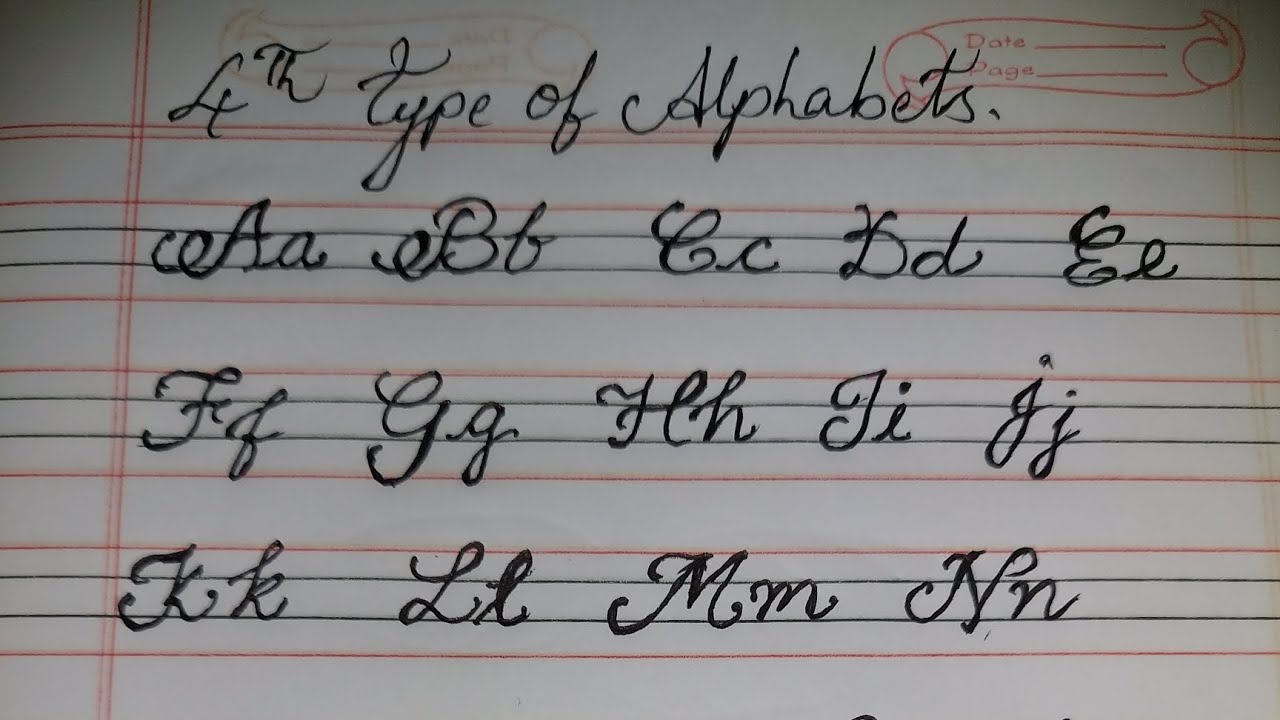 Date
Page
4th Type of Alphabets.
Aa Bb Cc Dd Ee
Ff Gg Hh Ii Jj
Kk Ll Mm Nn